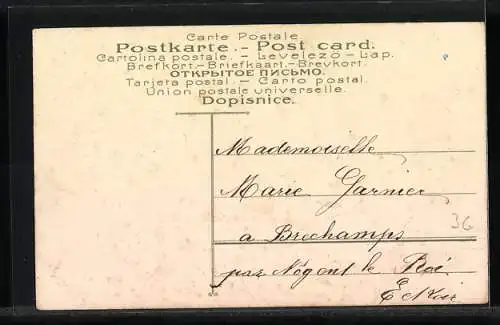 Carte Postale
Postkarte. - Post card.
Cartolina postale. - Levelező - Lap.
Brefkort. - Briefkaart. - Brevkort.
ОТКРЫТОЕ ПИСЬМО.
Tarjeta postal. - Carto postal.
Union postale universelle.
Dopisnice.
Mademoiselle
Marie Garnier
a Brechamps
par Nogent le Roi
E et Loir
36